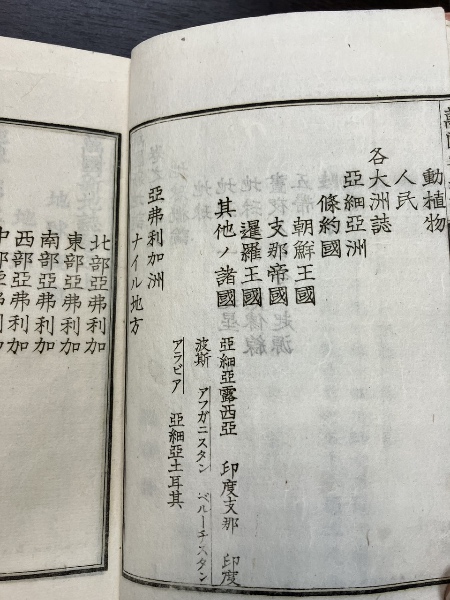 動植物
人民
各大洲誌
亞細亞洲
條約國
朝鮮王國
支那帝國
暹羅王國
其他ノ諸國
亞細亞露西亞 印度支那 印度
波斯 アフガニスタン ベルーチスタン
アラビア 亞細亞土耳其
亞弗利加洲
ナイル地方
北部亞弗利加
東部亞弗利加
南部亞弗利加
西部亞弗利加
中部亞弗利加